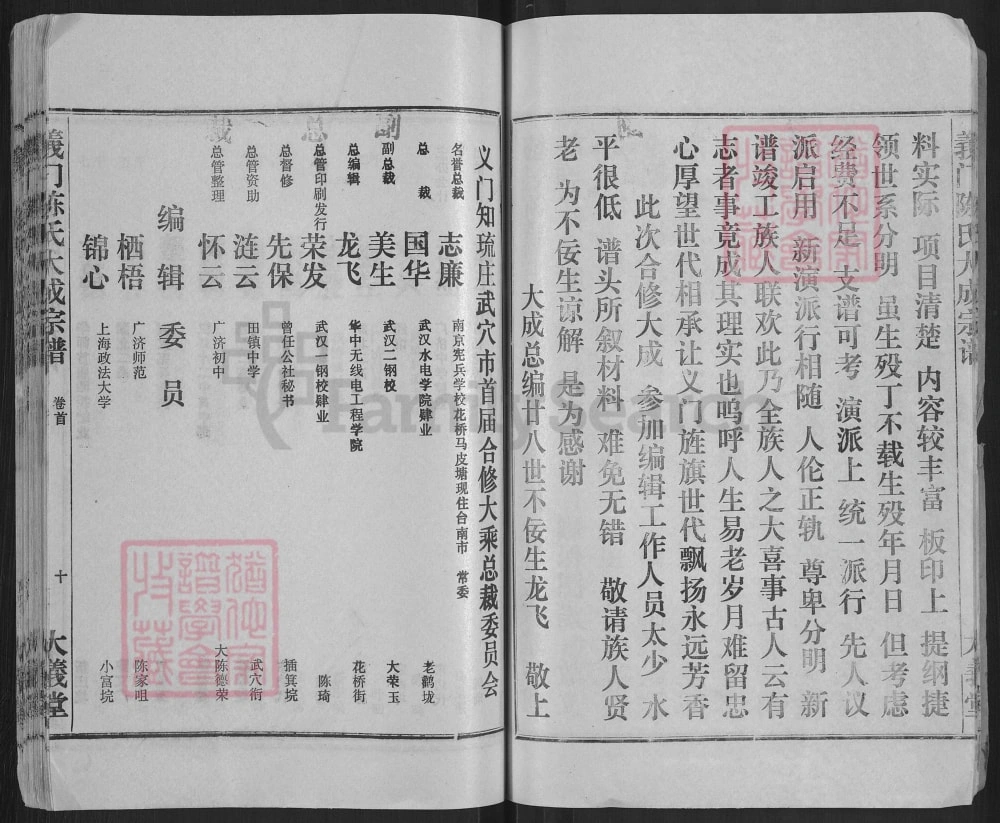 义门陈氏大成宗谱
大义堂
料实际 项目清楚 内容较丰富 板印上 提纲捷
领世系分明 虽生殁丁不载生殁年月日 但考虑
经费不足 文谱可考 演派上 统一派行 先人议
派启用 新演派行相随 人伦正轨 尊卑分明 新
谱竣工族人联欢此乃全族人之大喜事古人云有
志者事竟成其理实也呜呼人生易老岁月难留忠
心厚望世代相承让义门旌旗世代飘扬永远芳香
此次合修大成 参加编辑工作人员太少 水
平很低 谱头所叙材料 难免无错 敬请族人贤
老 为不佞生谅解 是为感谢
大成总编廿八世不佞生龙飞 敬上
义门知琉庄武穴市首届合修大乘总裁委员会
名誉总裁 志廉 南京宪兵学校花桥马皮塘现住台南市 常委
总裁 国华 武汉水电学院肄业 老鹤垅
副总裁 美生 武汉二钢校 大荣玉
总编辑 龙飞 华中无线电工程学院 花桥街
总管印刷发行 荣发 武汉一钢校肄业 陈琦
总督修 先保 曾任公社秘书 插箕垸
总管资助 涟云 田镇中学 武穴街
总管整理 怀云 广济初中 大陈德荣
编辑委员
栖梧 广济师范 陈家咀
锦心 上海政法大学 小富垸
義门陈氏大成宗谱 卷首 十 大義堂
FamilySearch